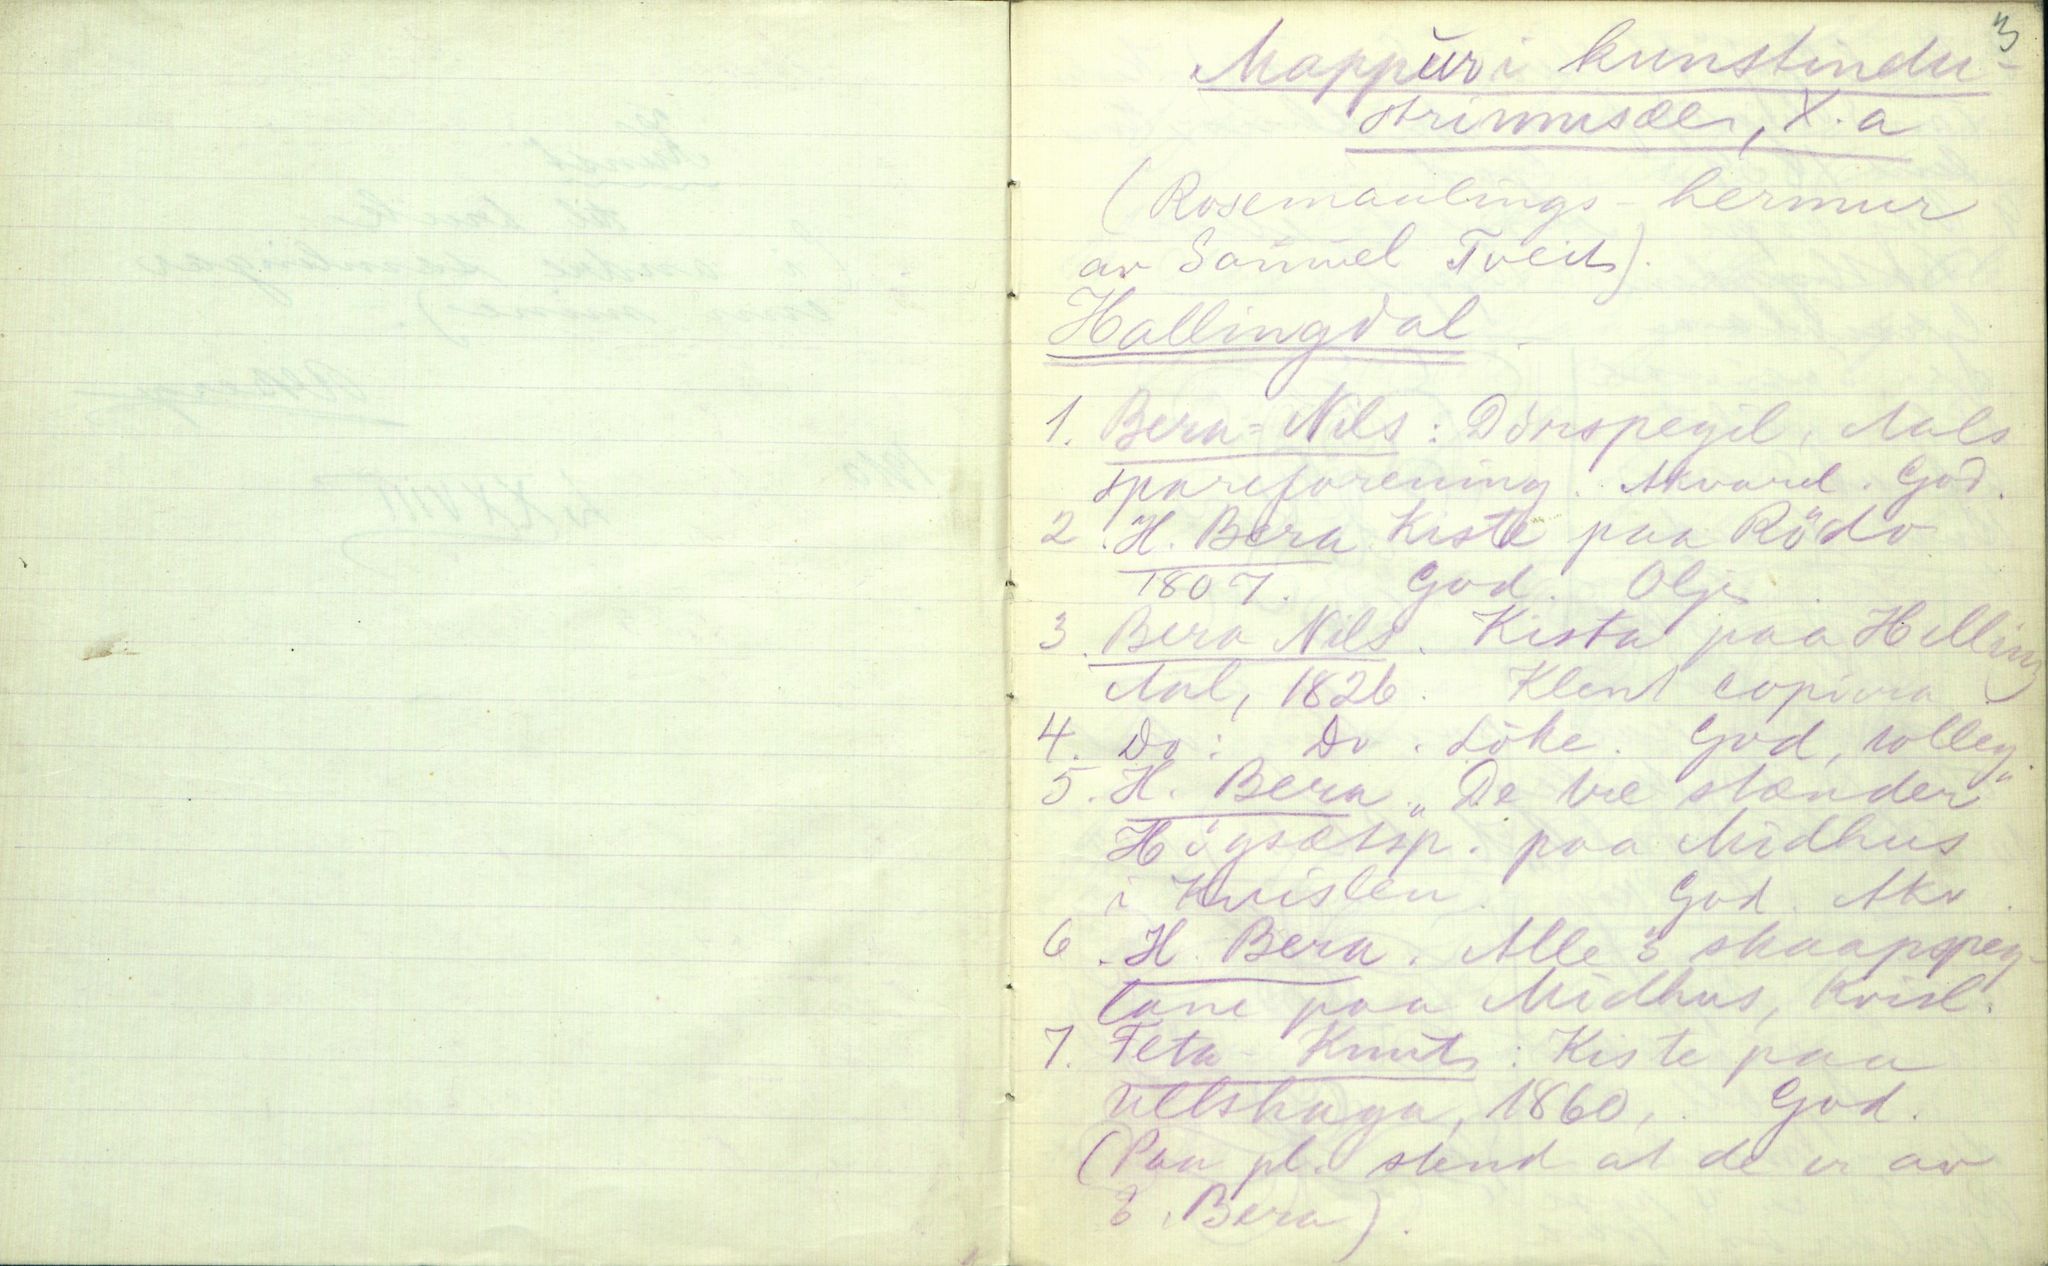 3
Mappur i kunstindu-
strimuséer, X.a
(Rosemaalings-hermur
av Samuel Tveit).
Hallingdal
1. Bera-Nils: Dörspegil, Aals
spareforening. Akvarel. God.
2. H. Bera Kiste paa Rödo
1807. God. Olje.
3. Bera Nils. Kista paa Helling
Aal, 1826. Klent copiera
4. Do: Do. Löke. God,
5. H. Bera „De tre stænder"
Högsætsp. paa Midhus
i Kvislen. God. Akv.
6. H. Bera. Alle 3 skaapspeg-
lane paa Midhus, Kvisl.
7. Feta-Knut: Kiste paa
Ullshaga, 1860. God.
(Paa pl. stend at de er av
E. Bera).